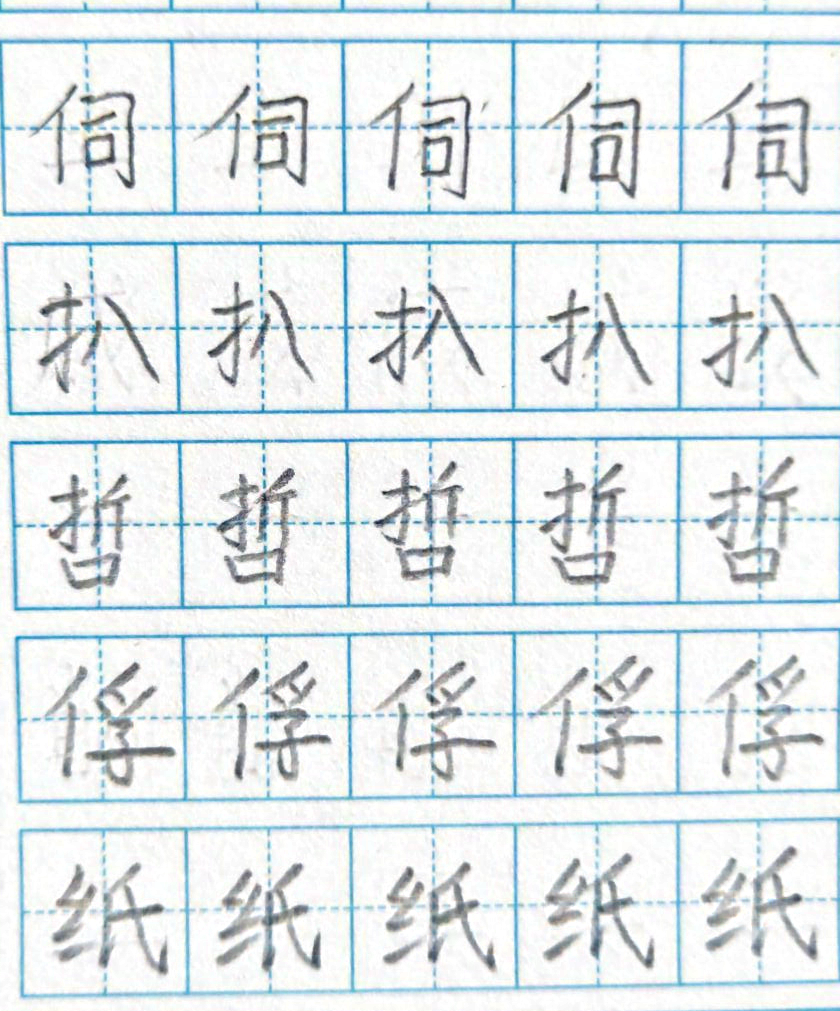 伺伺伺伺伺
扒扒扒扒扒
哲哲哲哲哲
俘俘俘俘俘
纸纸纸纸纸